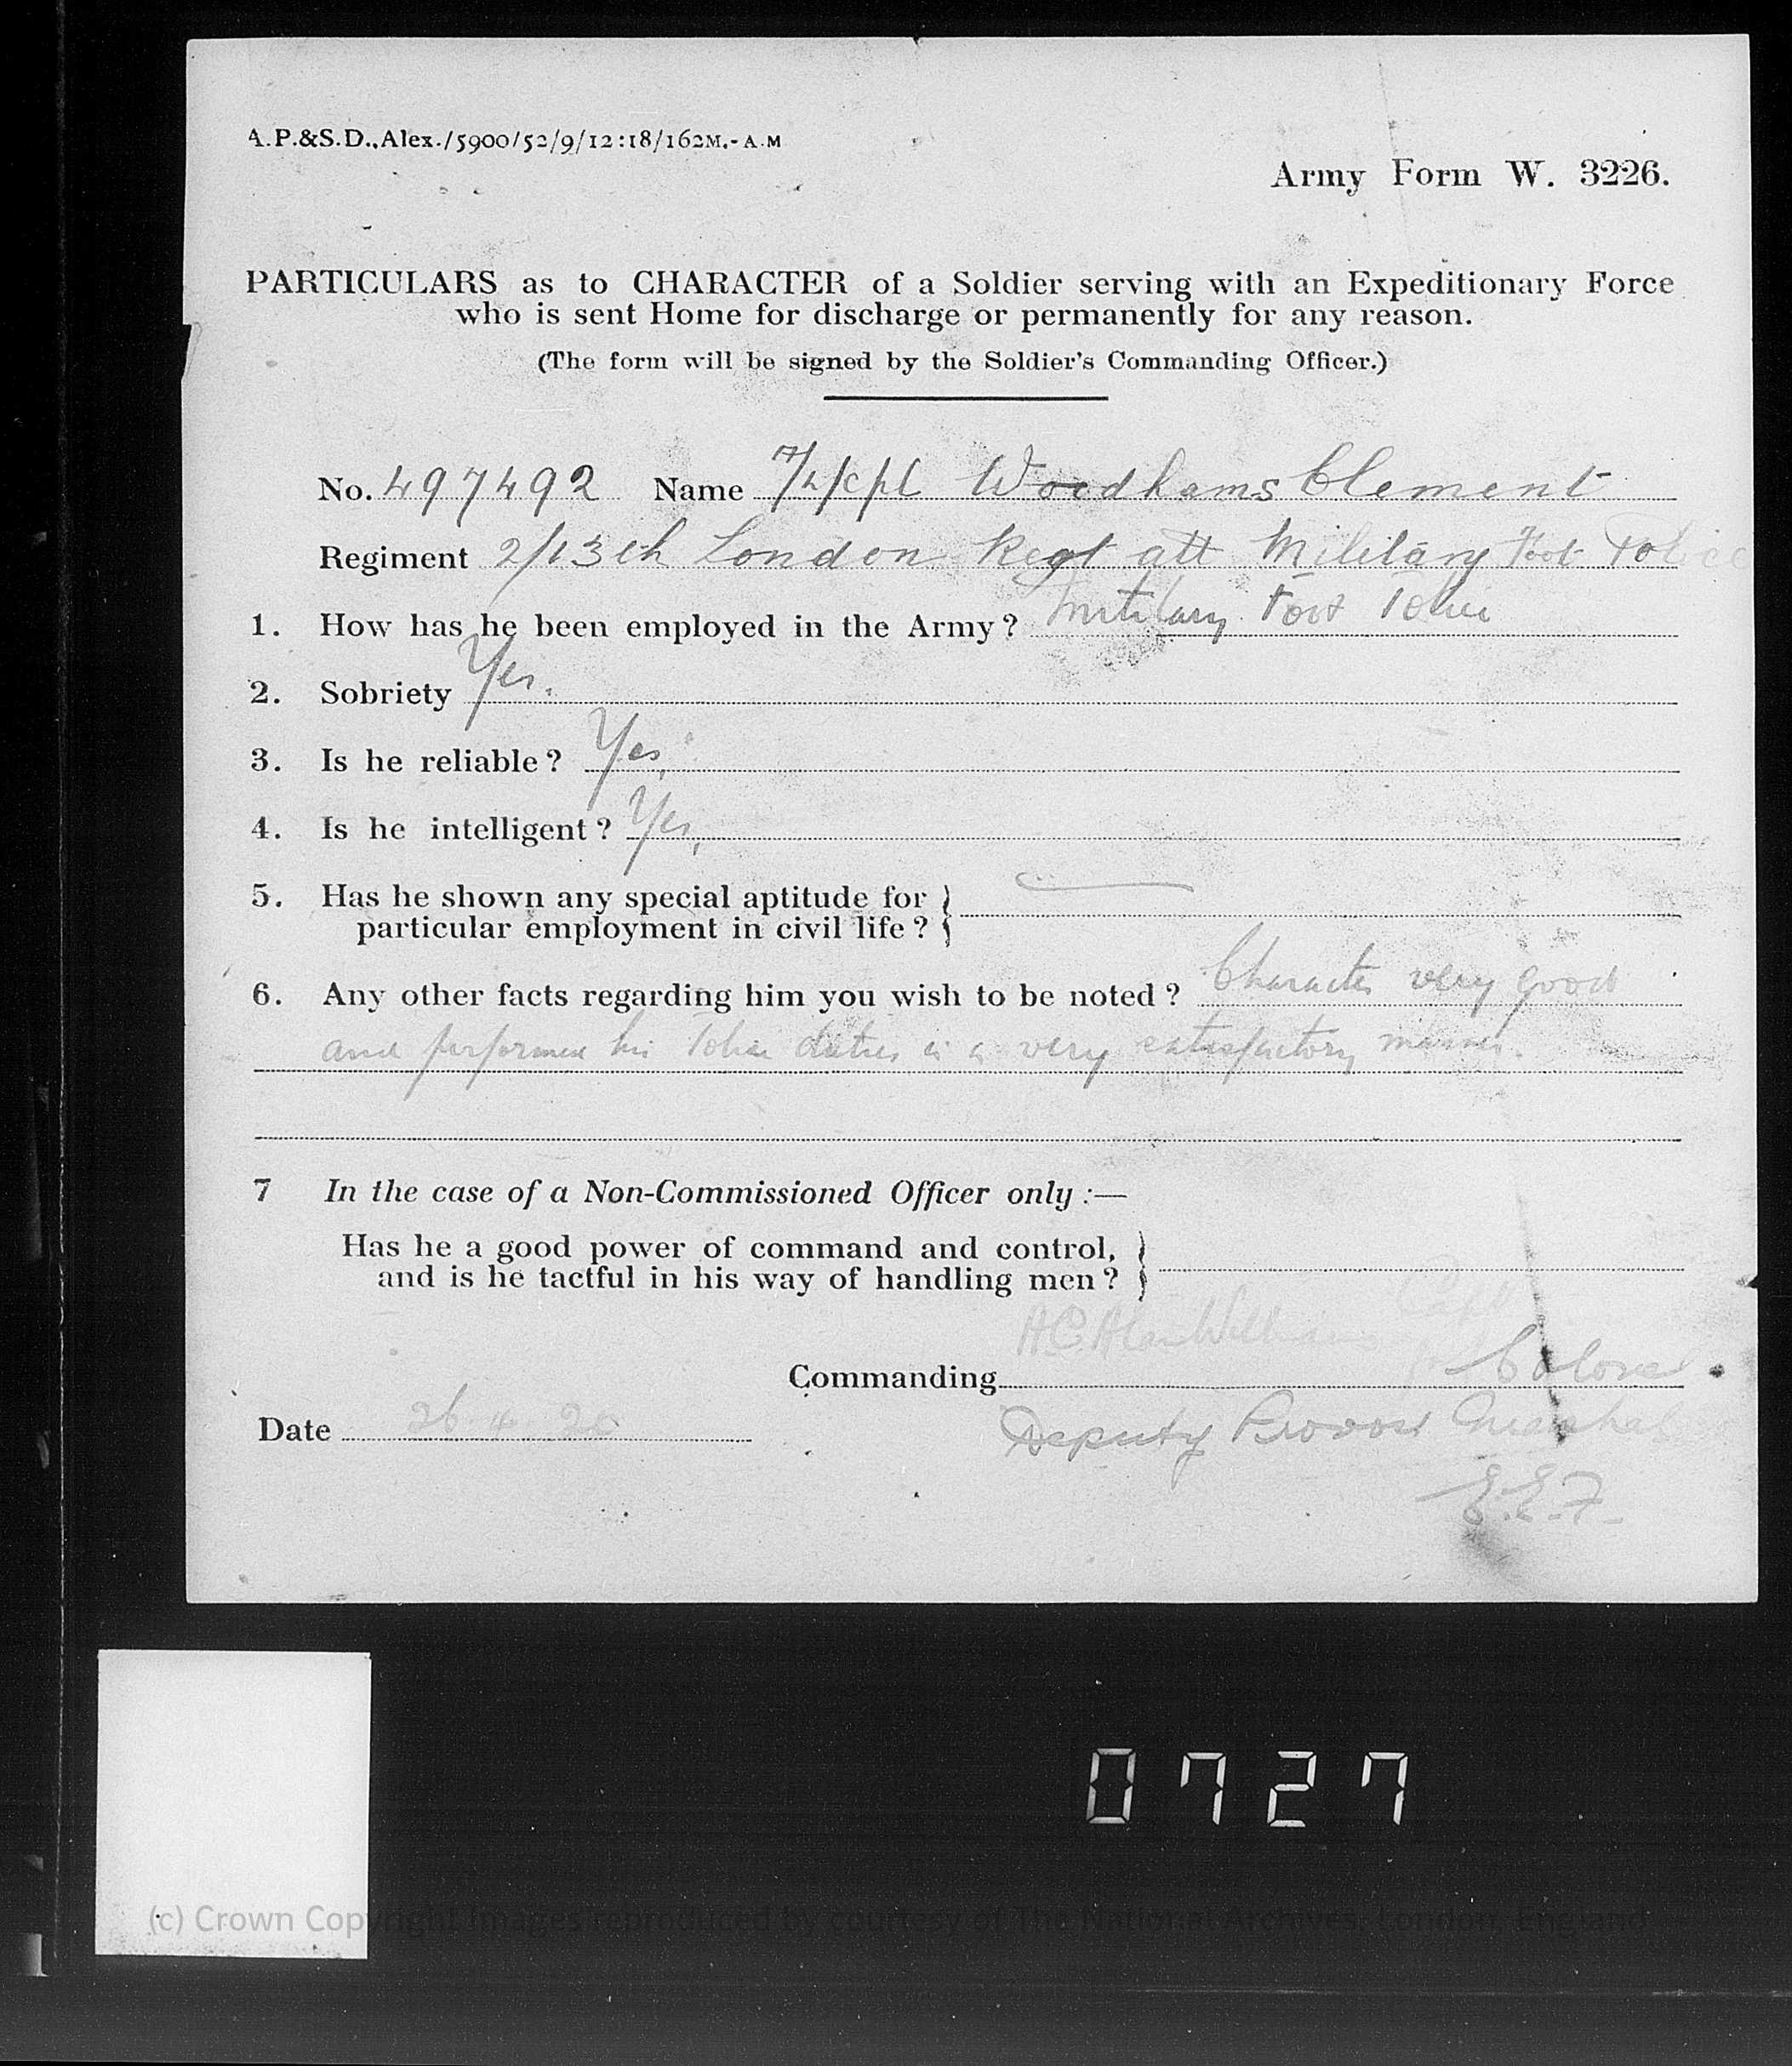 A.P.&S.D.,Alex./5900/52/9/12:18/162M.-A.M
Army Form W. 3226.
PARTICULARS as to CHARACTER of a Soldier serving with an Expeditionary Force
who is sent Home for discharge or permanently for any reason.
(The form will be signed by the Soldier's Commanding Officer.)
No. 497492 Name A/L/Cpl Woodhams Clement
Regiment 2/13th London Regt att Military Foot Police
1. How has he been employed in the Army? Military Foot Police
2. Sobriety Yes.
3. Is he reliable? Yes.
4. Is he intelligent? Yes.
5. Has he shown any special aptitude for
particular employment in civil life?
6. Any other facts regarding him you wish to be noted? Character very good
and performed his Police duties in a very satisfactory manner.
7 In the case of a Non-Commissioned Officer only :—
Has he a good power of command and control,
and is he tactful in his way of handling men?
Capt
Commanding Colonel
Date 26.4.20 Deputy Provost Marshal
E.E.F.
0727
(c) Crown Copyright Images reproduced by courtesy of The National Archives, London, England